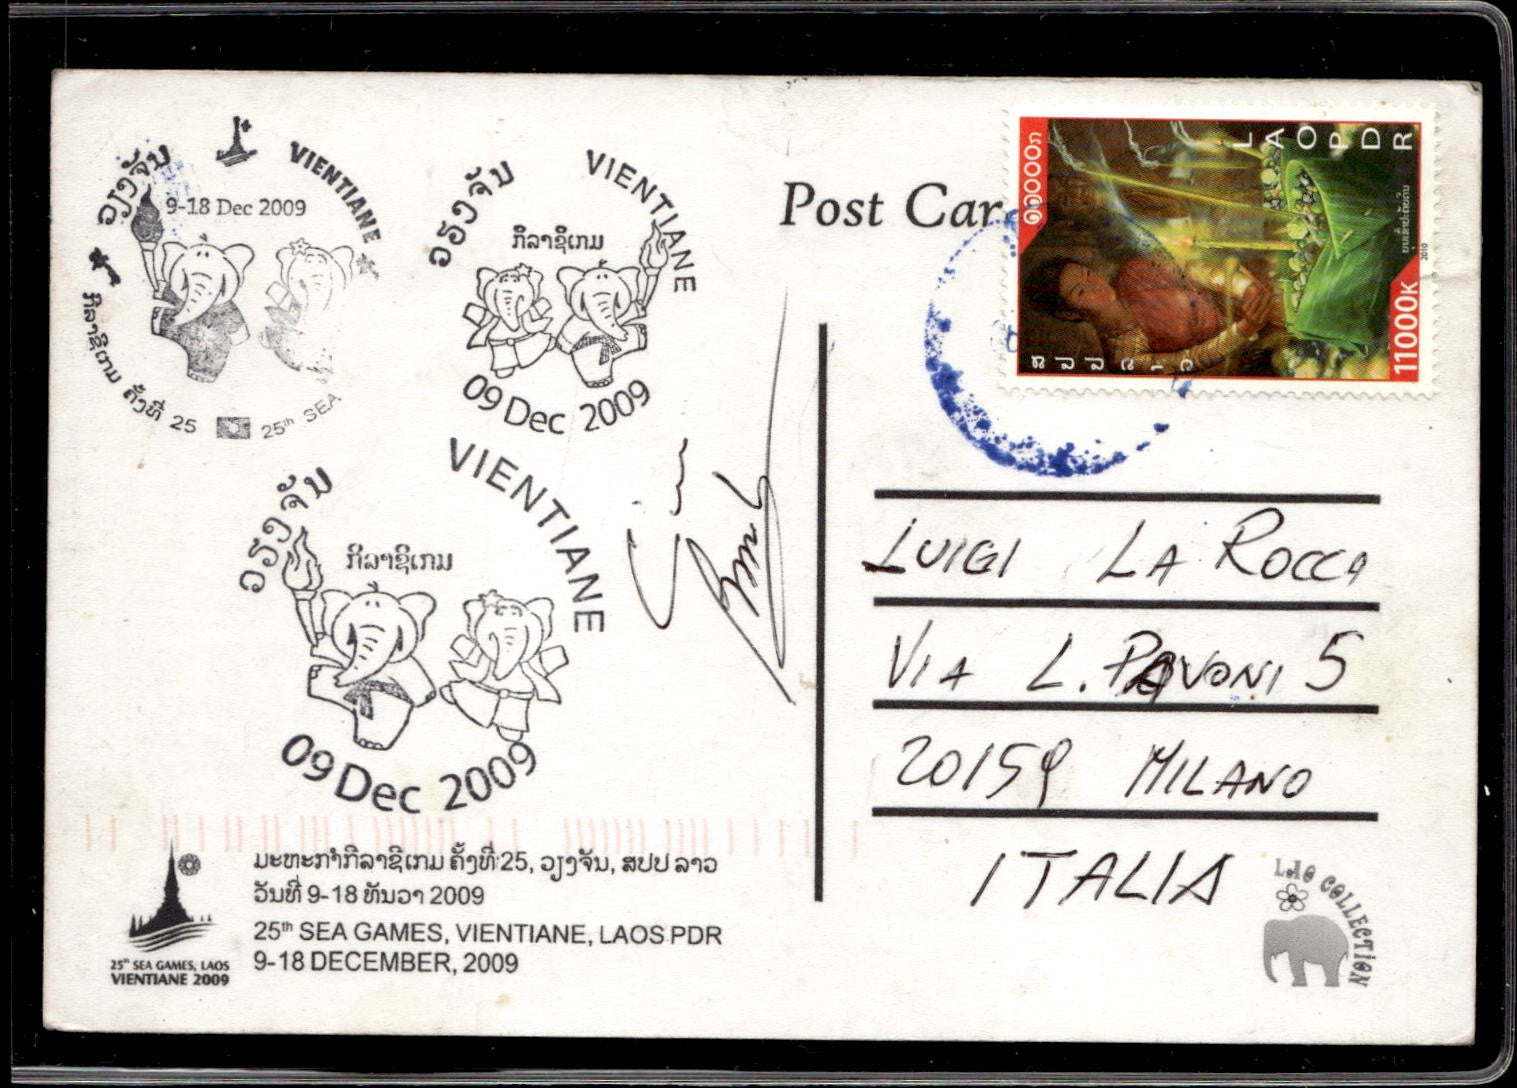 ວຽງຈັນ VIENTIANE
9-18 Dec 2009
ກິລາຊີເກມ ຄັ້ງທີ 25 25th SEA
ວຽງຈັນ VIENTIANE
ກິລາຊີເກມ
09 Dec 2009
ວຽງຈັນ VIENTIANE
ກິລາຊີເກມ
09 Dec 2009
Post Car
LAO PDR
໑໑໐໐໐ກ
11000K
ສປປ ລາວ
2010
LUIGI LA ROCCA
VIA L. PAVONI 5
20159 MILANO
ITALIA
ມະຫະກຳກິລາຊີເກມ ຄັ້ງທີ 25, ວຽງຈັນ, ສປປ ລາວ
ວັນທີ 9-18 ທັນວາ 2009
25th SEA GAMES, VIENTIANE, LAOS PDR
9-18 DECEMBER, 2009
25th SEA GAMES, LAOS
VIENTIANE 2009
LAO COLLECTION